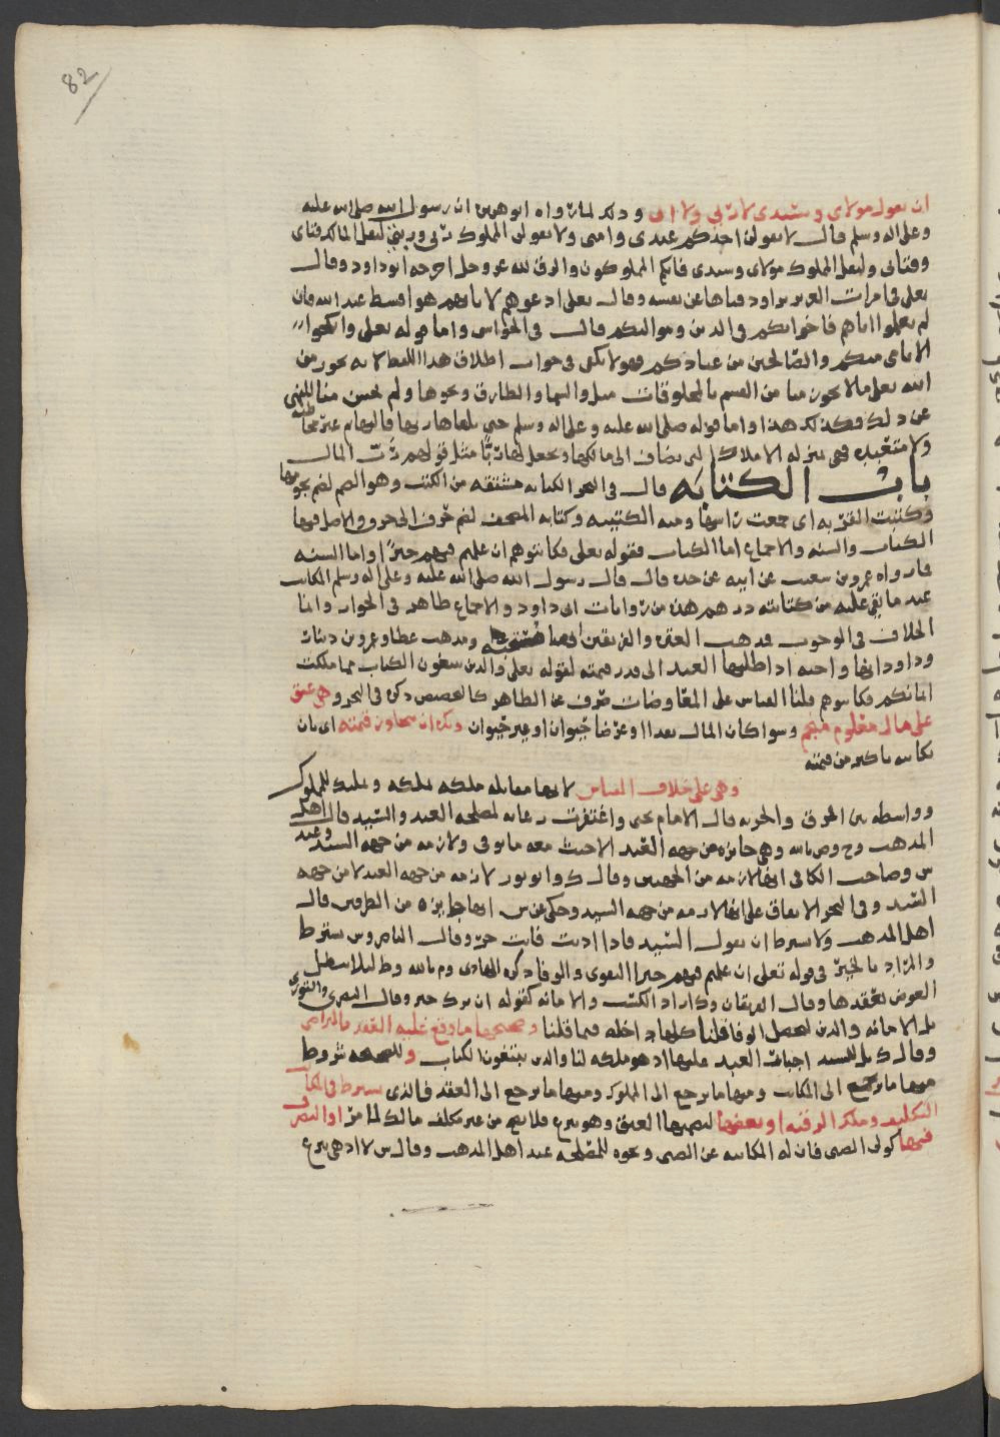 82
ان يقول مولاي وسيدي لا ربي ولا وذلك لما رواه ابو هريره ان رسول الله صلى الله عليه
وعلى اله وسلم قال لا يقولن احدكم عبدي وامتي ولا يقولن المملوك ربي وربتي ليقل المالك فتاي
وفتاتي وليقل المملوك مولاي وسيدي فانكم المملوكون والرب لله عز وجل اخرجه ابو داود وقال
تعلى في امرات العزيز تراود فتاها عن نفسه وقال تعلى ادعوهم لابائهم هو اقسط عند الله فان
لم تعلموا اباهم فاخوانكم في الدين ومواليكم قال في الخواس واما قوله تعلى وانكحوا
الايامى منكم والصالحين من عبادكم فهو لا يكفي في جواز اطلاق هذا اللفظ لانه يجوز من
الله تعلى ما لا يجوز منا من القسم بالمخلوقات مثل والسما والطارق ونحوها ولم يحسن منا للنهي
عن ذلك فكذلك هذا واما قوله صلى الله عليه وعلى اله وسلم حتى يلقاها ربها فالبهايم غير
ولا متعبده فهي بمنزله الاملاك التي تضاف الى مالكها ويجعل لها ربا مثل قولهم رب المال
باب الكتابه قال في البحر الكتابه مشتقه من الكتب وهو الضم لضم نجومها
وكتبت القربه اي جمعت راسها ومنه الكتيبه وكتابه المصحف لضم حرف الى حرف والاصل فيها
الكتاب والسنه والاجماع اما الكتاب فقوله تعلى فكاتبوهم ان علمتم فيهم خيرا واما السنه
فما رواه عمرو بن شعيب عن ابيه عن جده قال قال رسول الله صلى الله عليه وعلى اله وسلم المكاتب
عبد ما بقي عليه من كتابته درهم هذه من روايات ابي داود والاجماع ظاهر في الجواز وانما
الخلاف في الوجوب فمذهب العتره والفريقين انها ومذهب عطا وعمرو بن دينار
وداود انها واجبه اذا طلبها العبد الى قدر قيمته لقوله تعلى والذين يبتغون الكتاب مما ملكت
ايمانكم فكاتبوهم قلنا القياس على المعاوضات صرف عن الظاهر كالتخصيص ذكره في البحر وهي عتق
على مال معلوم منجم وسوا كان المال نقدا او عرضا حيوان او غير حيوان ان قيمته اي بان
يكاتبه باكثر من قيمته
وهي على خلاف القياس لانها مقابله ملكه بملكه وتمليك للمملوك
وواسطه بين الرق والحريه قال الامام يحى واغتفرت رعايه لمصلحه العبد والسيد قال اهل
المذهب وح وص بالله وهي جايزه من جهه العبد الا حيث معه ما يوفي ولازمه من جهه السيد وعند
ش وصاحب الكافي انها لازمه من الجهتين وقال ك وابو ثور لازمه من جهه العبد لا من جهه
السيد وفي البحر الاتفاق على انها لازمه من جهه السيد وحكى عن ش انها جايزه من الطرفين قال
اهل المذهب ولا يشترط ان يقول السيد فاذا اديت فانت حر وقال الناصر وش يشترط
والمراد بالخير في قوله تعلى ان علمتم فيهم خيرا التقوى والوفا ذكره الهادي وم بالله وط ليلا يبطل
العوض بعقدها وقال الفريقان وك اراد الكسب والامانه كقوله ان ترك خيرا وقال البصري والثوري
بل الامانه والدين لتحصل الوفا قلنا كلها داخله فيما قلنا وصحيحها ما وقع عليه العقد بالتراضي
وقال ك بل للسيد اجبار العبد عليها اذ هو ملكه لنا والذين يبتغون الكتاب وللصحه شروط
منها ما يرجع الى المكاتب ومنها ما يرجع الى المملوك ومنها ما يرجع الى العقد فالذي يشترط في المكاتب
التكليف وملك الرقبه او بعضها لتضمنها العتق وهو تبرع فلا يصح من غير مكلف مالك لما مر او التصرف
فيها كولي الصبي فان له المكاتبه عن الصبي ونحوه للمصلحه عند اهل المذهب وقال ش لا اذ هي تبرع